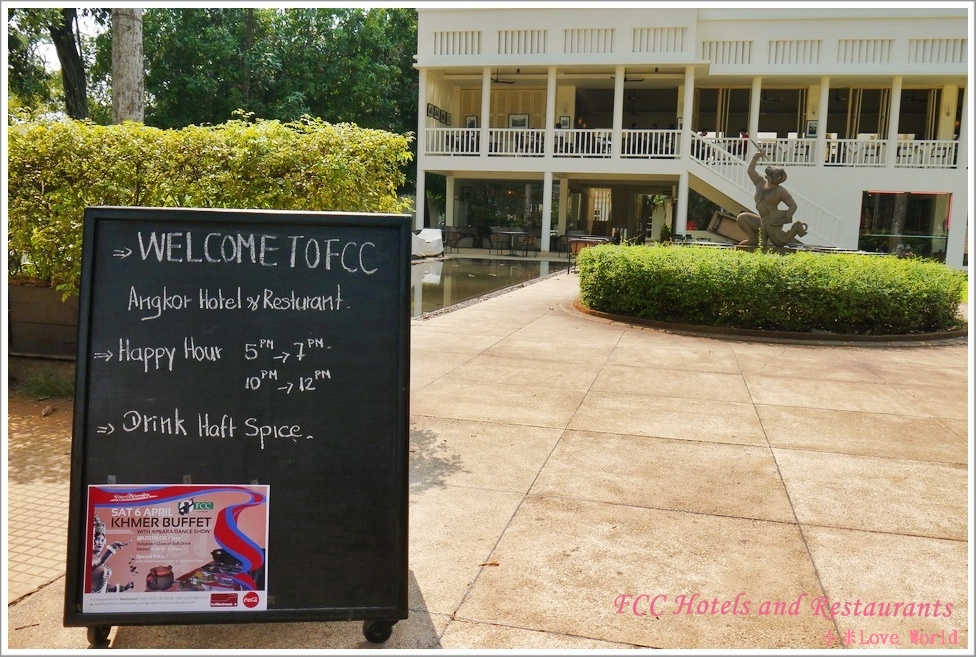 ⇒ WELCOME TO FCC
Angkor Hotel & Resturant.
⇒ Happy Hour 5PM → 7PM.
10PM → 12PM
⇒ Drink Haft Spice.
SAT 6 APRIL
FCC
KHMER BUFFET
WITH APSARA DANCE SHOW
Coca-Cola
FCC Hotels and Restaurants
Love World